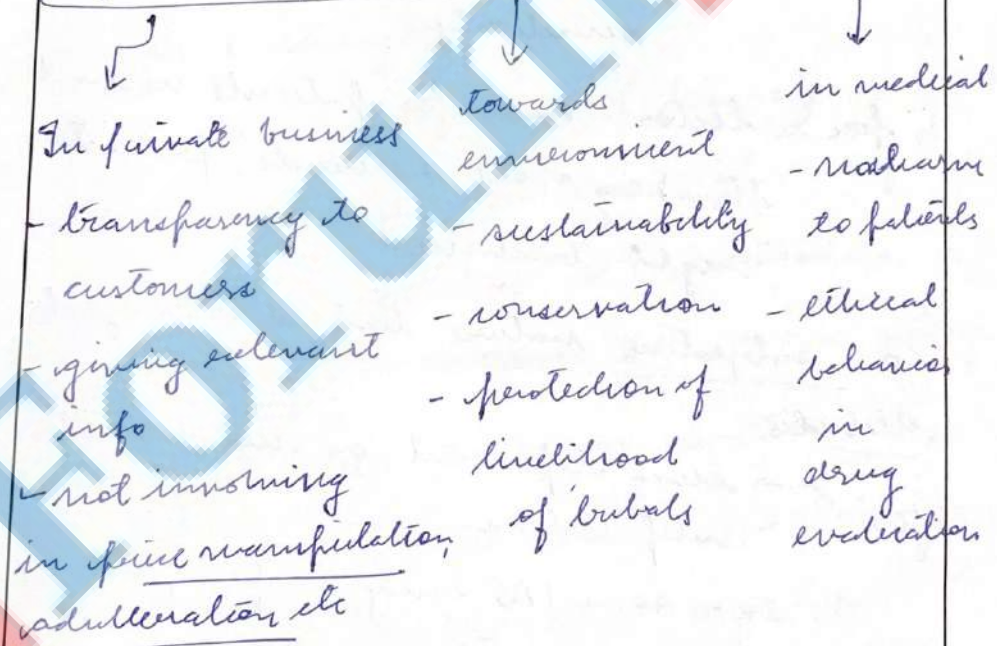 In private business
- transparency to
customers
- giving relevant
info
- not involving
in price manipulation,
adulteration etc
towards
environment
- sustainability
- conservation
- protection of
livelihood
of tribals
in medical
- no harm
to patients
- ethical
behavior
in
drug
evaluation
Forum